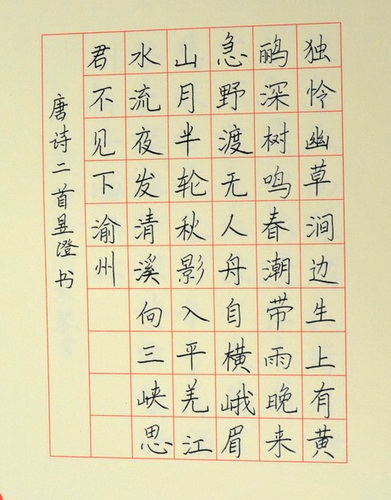 独怜幽草涧边生上有黄
鹂深树鸣春潮带雨晚来
急野渡无人舟自横峨眉
山月半轮秋影入平羌江
水流夜发清溪向三峡思
君不见下渝州
唐诗二首昱澄书